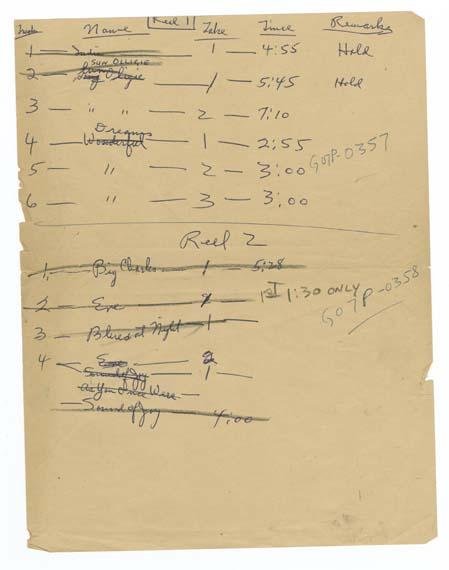 Reel 1
Name Take Time Remarks
1 - India 1 - 4:55 Hold
SUN OLLIGIE
2 - Ologie 1 - 5:45 Hold
3 - " " 2 - 7:10
Dreams
4 - Wonderful 1 - 2:55
5 - " - 2 - 3:00 GO7P-0357
6 - " - 3 - 3:00
Reel 2
1. - Big Charles 1 - 5:28
2 - Eve 1st 1:30 ONLY
GO7P-0358
3 - Blues at Night 1 -
4 - Eve 2
Sound of Joy - 1 -
As You Once Were -
- Sound of Joy 4:00